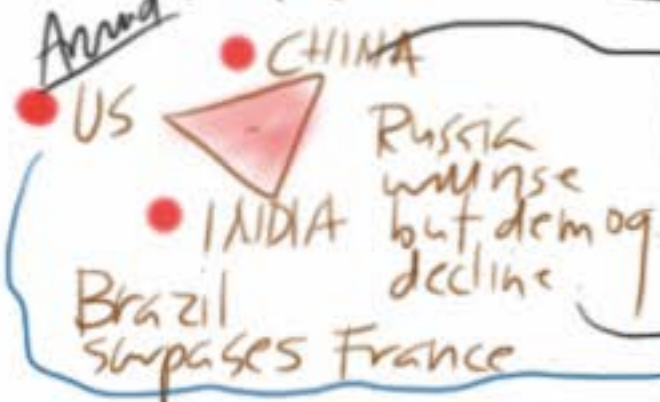 CHINA
US
INDIA
Russia
will rise
but demog
decline
Brazil
surpases France